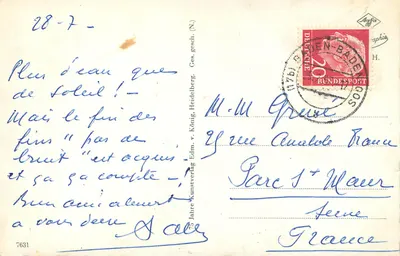 28-7-
Plus d'eau que
de soleil! -
Mais le fin des
fins "pas de
bruit" est acquis,
et ça ça compte -
Bien amicalement
a vous deux
7631
Jahre Kunstverlag Edm. v. König, Heidelberg. Ges. gesch. (N.)
DEUTSCHE
BUNDESPOST
20
(17b) BADEN-BADEN-OOS
H.
M-M
25 rue Anatole France
Parc St Maur
Seine
France